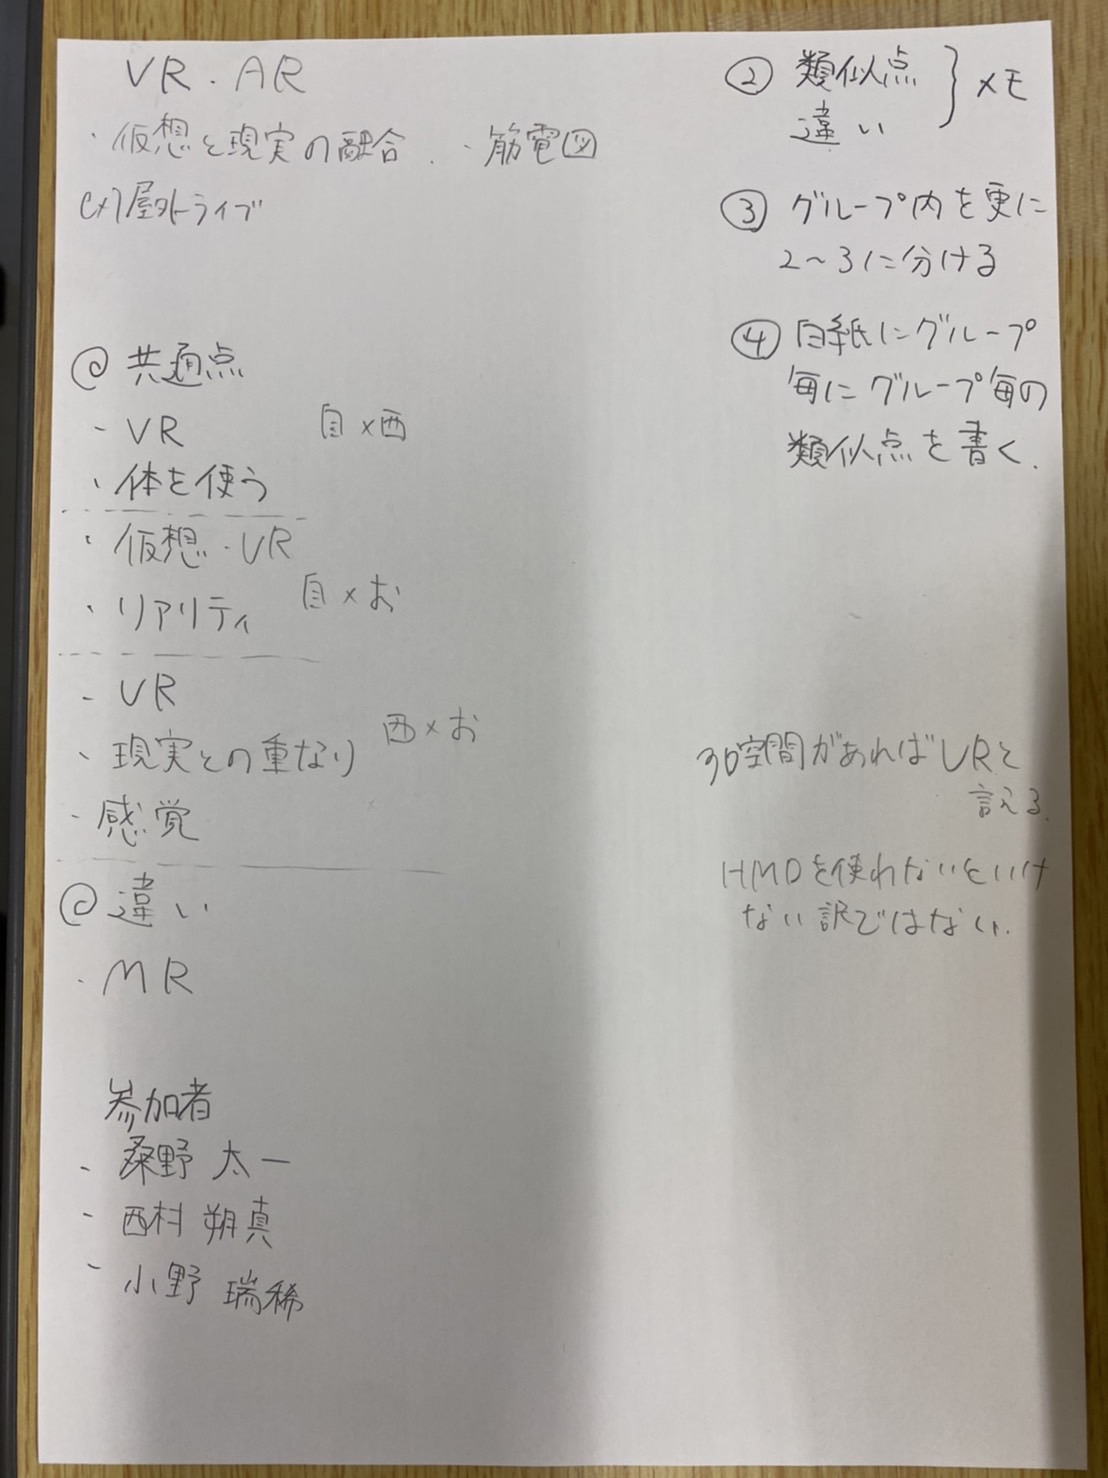 VR・AR
・仮想と現実の融合. ・筋電図
ex)屋外ライブ
@ 共通点
- VR 自×西
・体を使う
・仮想・VR
・リアリティ 自×お
- VR
・現実との重なり 西×お
・感覚
@ 違い
・MR
参加者
- 桑野 太一
- 西村 朔真
- 小野 瑞稀
② 類似点
違い } メモ
③ グループ内を更に
2〜3に分ける
④ 白紙にグループ
毎にグループ毎の
類似点を書く.
3D空間があればVRと
言える.
HMDを使わないといけ
ない訳ではない.